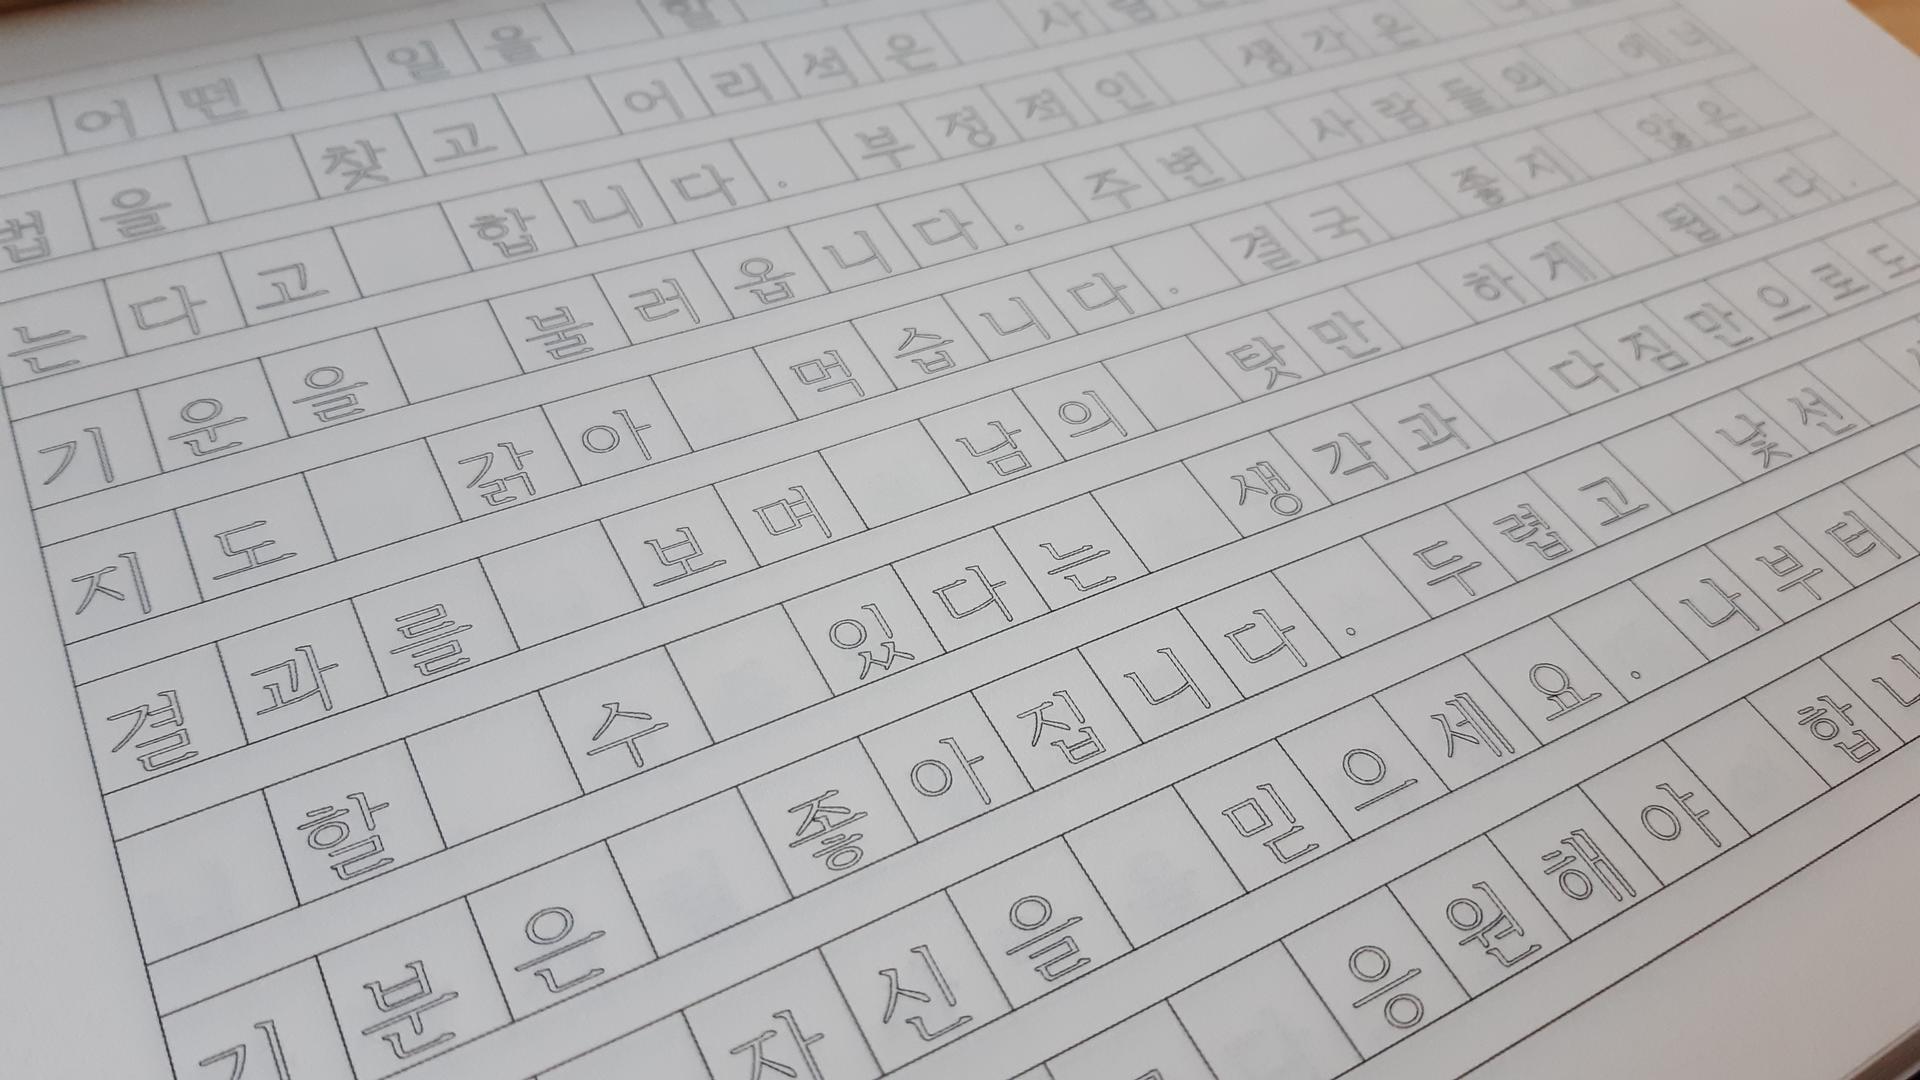 어떤 일을 할
법을 찾고 어리석은 사람
는다고 합니다. 부정적인 생각은
기운을 불러옵니다. 주변 사람들의 에너
지도 갉아 먹습니다. 결국 좋지 않은
결과를 보며 남의 탓만 하게 됩니다.
할 수 있다는 생각과 다짐만으로도
기분은 좋아집니다. 두렵고 낯선
자신을 믿으세요. 나부터
응원해야 합니